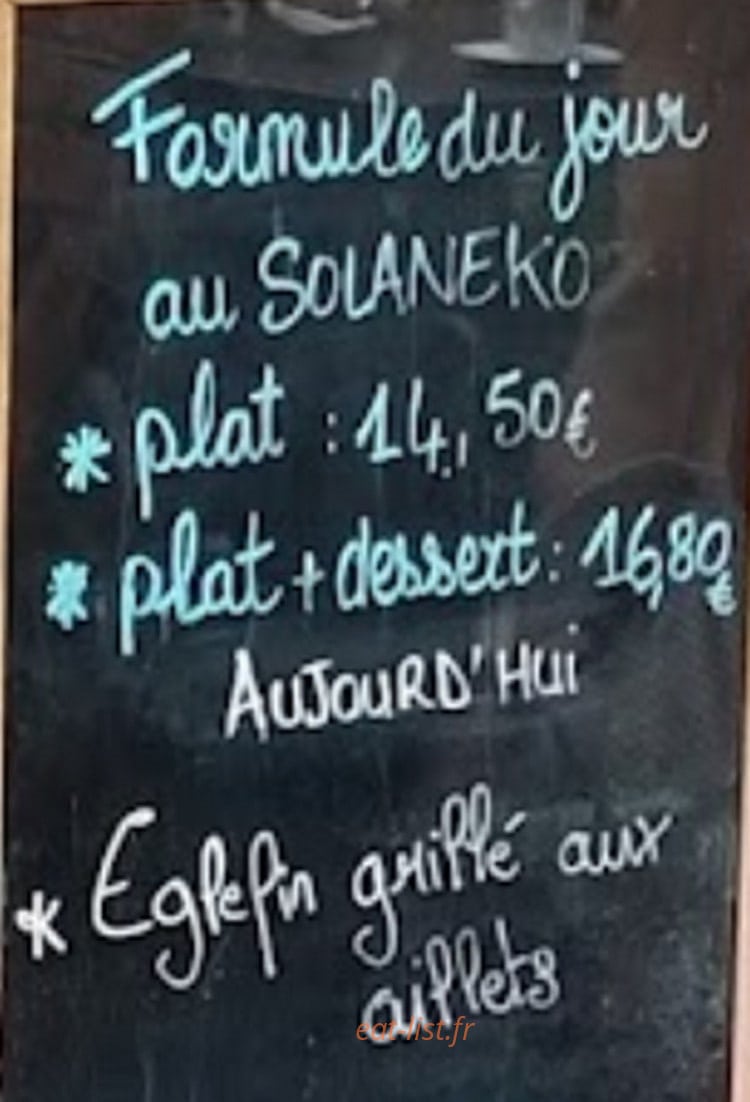 Formule du jour
au SOLANEKO
* plat : 14,50€
* plat + dessert : 16,80€
AUJOURD'HUI
* Eglefin grillé aux
aillets
eat-list.fr